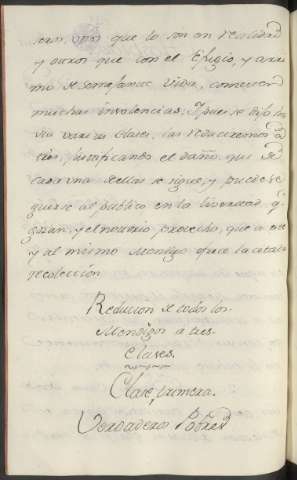 seros, unos que lo son en realidad
y otros que con el Efigio, y ani
mo de semejante vida, comeren
muchas insolencias. Y pues se dijo
varias clases, las reduciremos à
tres, justificando el daño, que de
cada una de ellas se sigue, y puede se
guirse al publico en la livertad, q.
gozan, y el notorio provecho, que à este
y al mismo Mendigo ofrece la
recoleccion
Reducion de todos los
Mendigos a tres
clases.
Clase primera.
Verdaderos Pobres